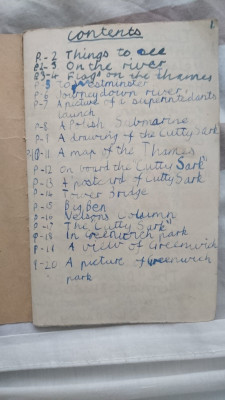 contents
P-2 Things to see
P2-3 On the river
P3-4 Flags on the Thames
P-5 To westminster
P-6 Journey down river,
P-7 A picture of a superintedents
launch
P-8 A Polish Submarine
P-9 A drawing of the Cutty Sark
P10-11 A map of the Thames
P-12 On board the Cutty Sark
P-13 A postcard of Cutty Sark
P-14 Tower Bridge
P-15 Big Ben
P-16 Nelsons Column
P-17 The Cutty Sark
P-18 In Greenwich park
P-19 A view of Greenwich
P-20 A picture of Greenwich
park